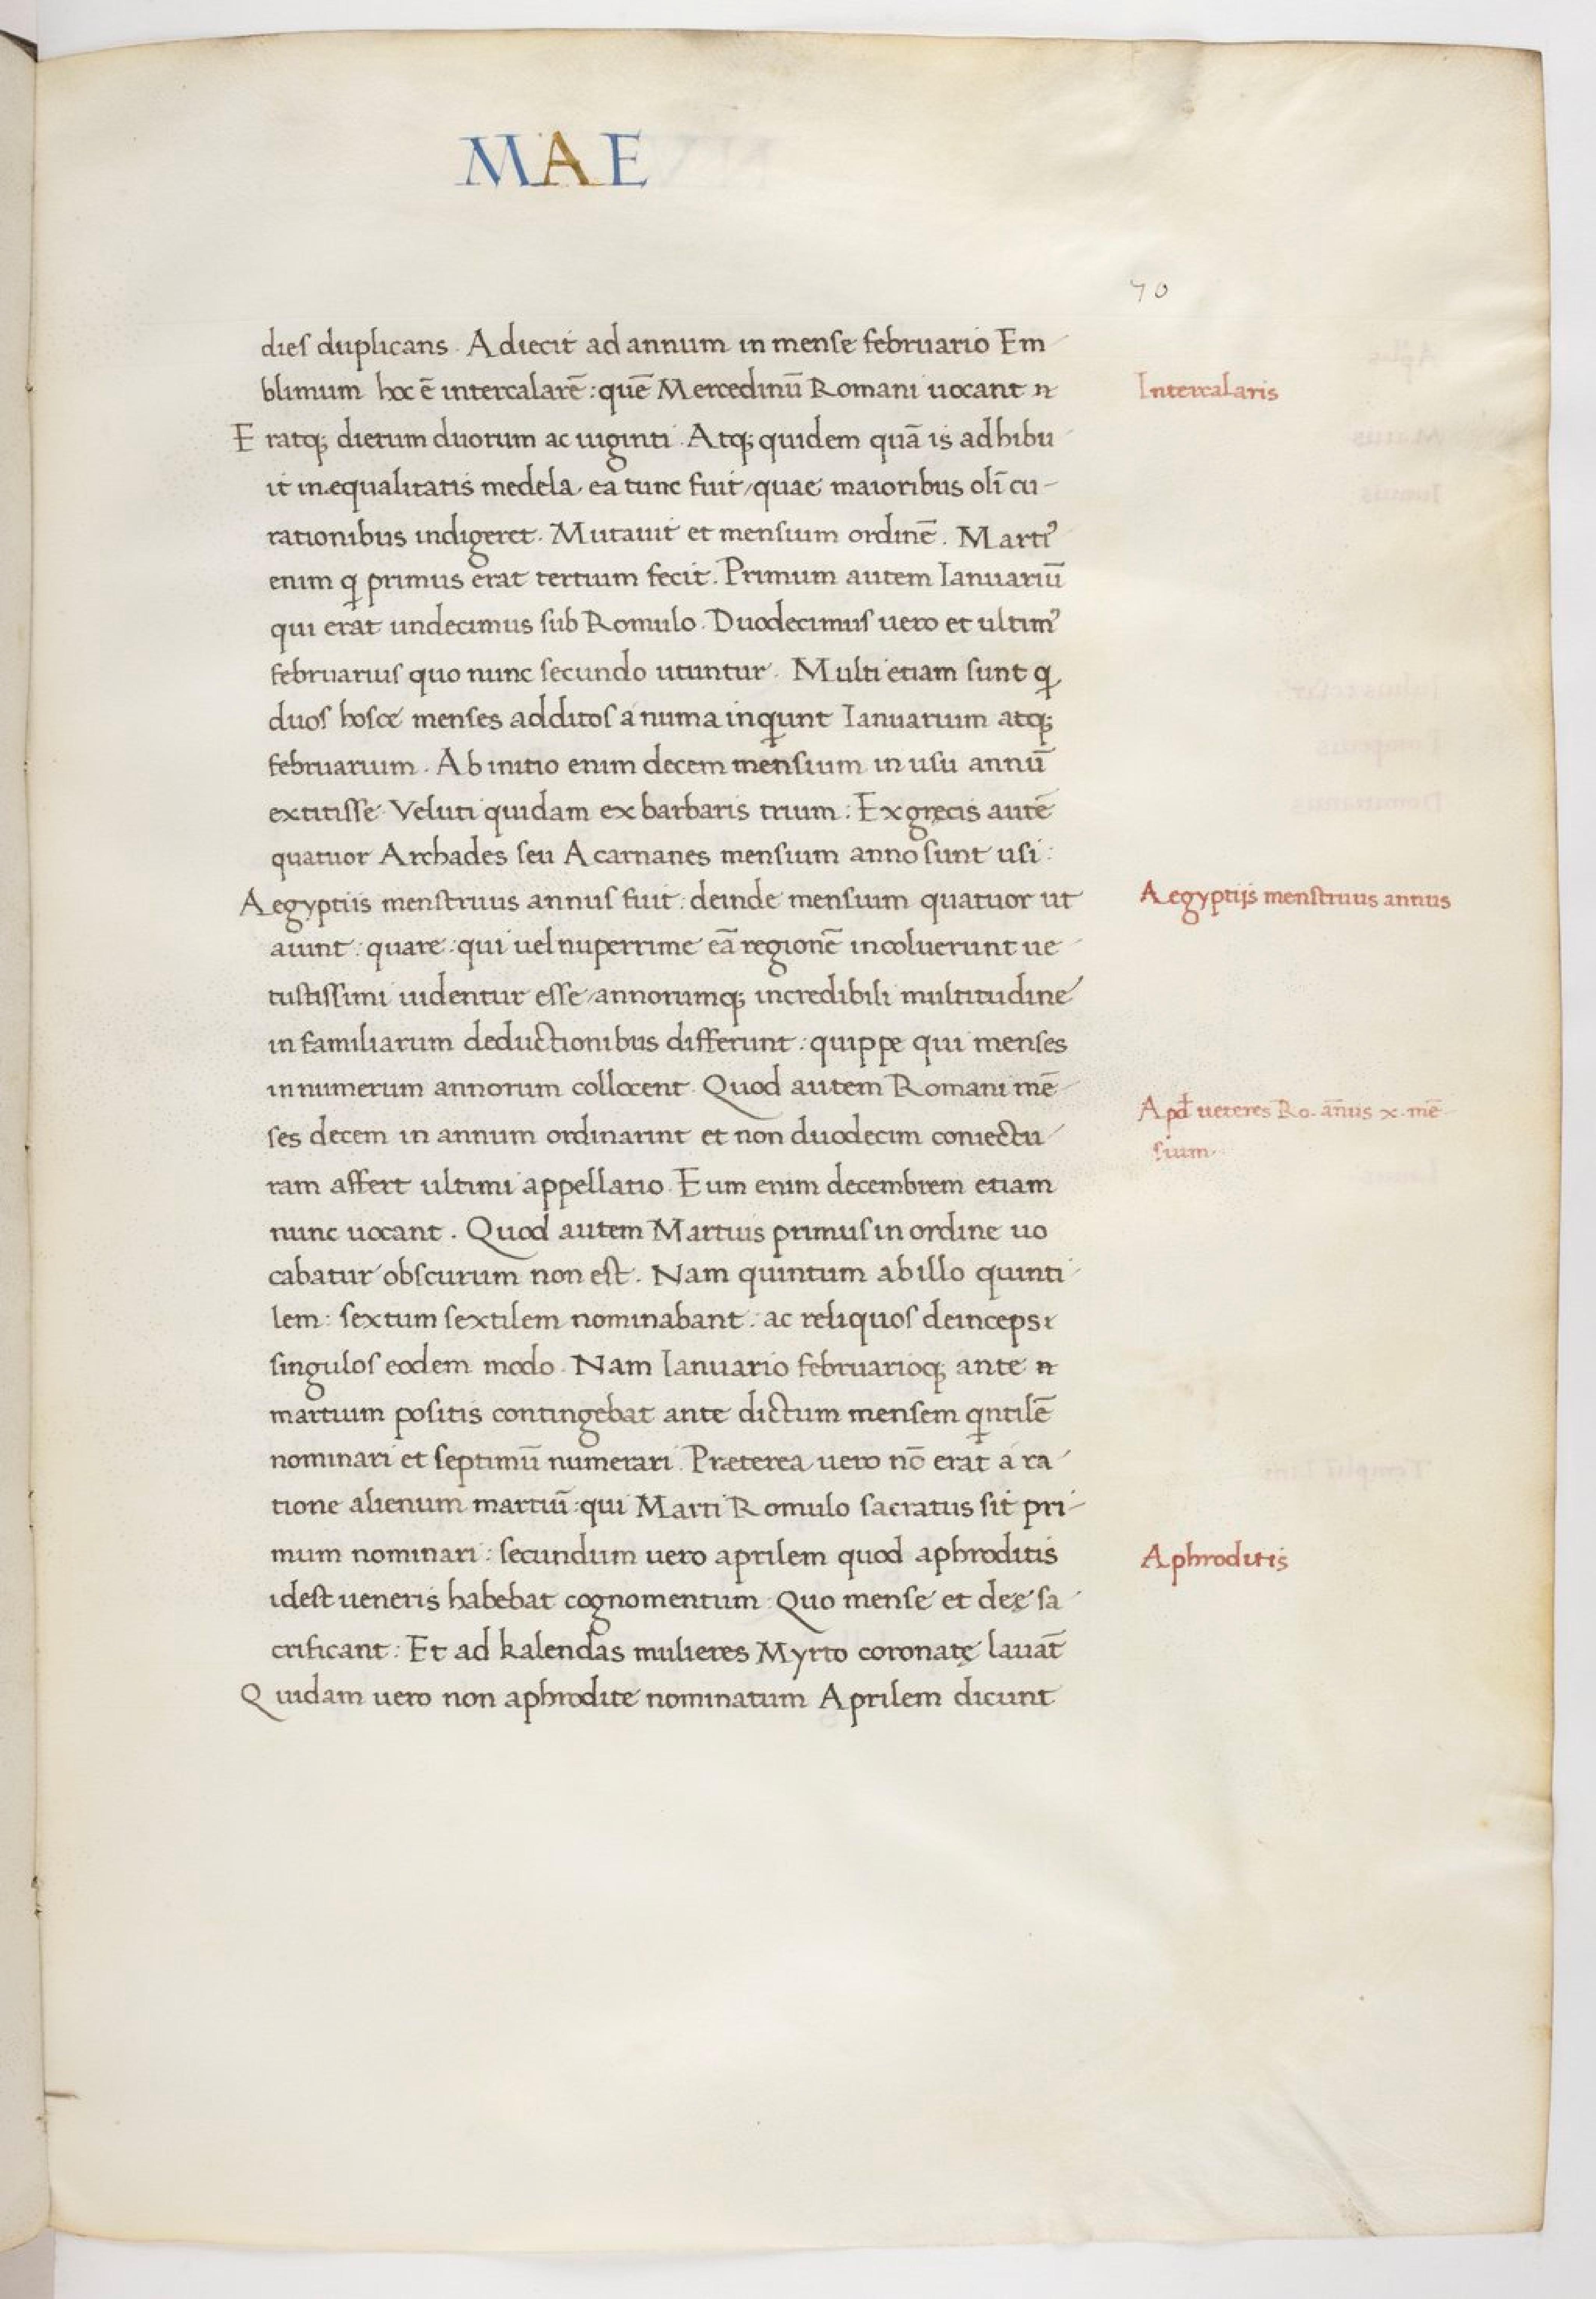 MAE
70
dies duplicans. Adiecit ad annum in mense februario Em
blimum hoc ē intercalarē: quē Mercedinū Romani uocant
Intercalaris
Eratq; dierum duorum ac uiginti. Atq; quidem quā is adhibu
it inequalitatis medela, ea tunc fuit, quae maioribus olī cu-
rationibus indigeret. Mutauit et mensium ordinē. Martiꝰ
enim q primus erat tertium fecit. Primum autem Ianuariū
qui erat undecimus sub Romulo. Duodecimus uero et ultimꝰ
februarius quo nunc secundo utuntur. Multi etiam sunt q
duos hosce menses additos a numa inqunt Ianuarium atq;
februarium. Ab initio enim decem mensium in usu annū
extitisse. Veluti quidam ex barbaris trium: Ex gręcis autē
quatuor Archades seu Acarnanes mensium anno sunt usi:
Aegyptiis menstruus annus fuit: deinde mensium quatuor ut
Aegyptijs menstruus annus
aiunt: quare: qui uel nuperrime eā regionē incoluerunt ue
tustissimi uidentur esse, annorumq; incredibili multitudine
in familiarum deductionibus differunt: quippe qui menses
in numerum annorum collocent. Quod autem Romani mē
Apd ueteres Ro. ānus x. mē
sium.
ses decem in annum ordinarint et non duodecim coniectu
ram affert ultimi appellatio. Eum enim decembrem etiam
nunc uocant. Quod autem Martius primus in ordine uo
cabatur obscurum non est. Nam quintum ab illo quinti
lem: sextum sextilem nominabant: ac reliquos deinceps
singulos eodem modo. Nam Ianuario februarioq; ante
martium positis contingebat ante dictum mensem qntilē
nominari et septimū numerari. Præterea uero nō erat a ra
tione alienum martiū: qui Marti Romulo sacratus sit pri-
mum nominari: secundum uero aprilem quod aphroditis
Aphroditis
idest ueneris habebat cognomentum. Quo mense et deę sa
crificant: Et ad kalendas mulieres Myrto coronatę lauāt
Quidam uero non aphrodite nominatum Aprilem dicunt